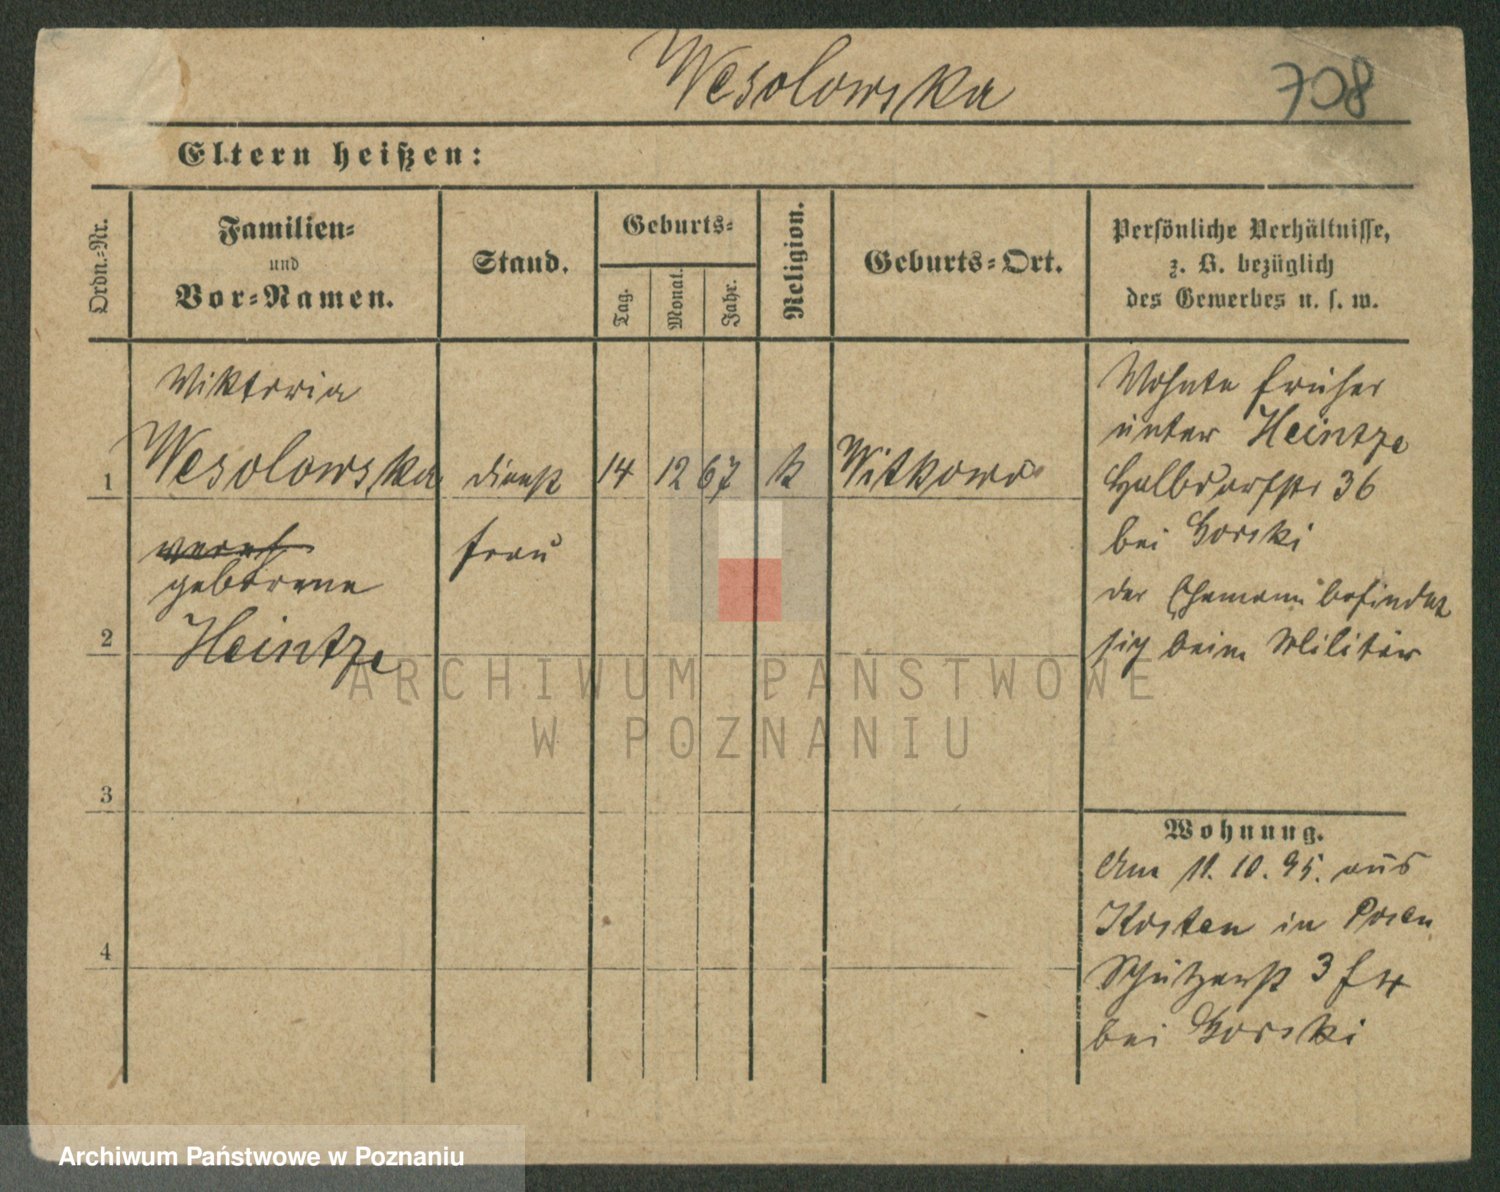 Wesolowska
708
Eltern heißen:
Ordn.-Nr.
Familien-
und
Vor-Namen.
Stand.
Geburts-
Tag.
Monat.
Jahr.
Religion.
Geburts-Ort.
Persönliche Verhältnisse,
z. B. bezüglich
des Gewerbes u. s. w.
Wiktoria
1 Wesolowska dienst 14 12 67 k Witkowo
frau
geborene
2 Heintze
3
4
Wohnte früher
unter Heintze
Halbdorfstr 36
bei Gorski
der Ehemann befindet
sich beim Militär
Wohnung.
Am 11. 10. 95. aus
Kosten in Posen
Schützenst 3
bei Gorski
ARCHIWUM PAŃSTWOWE
W POZNANIU
Archiwum Państwowe w Poznaniu